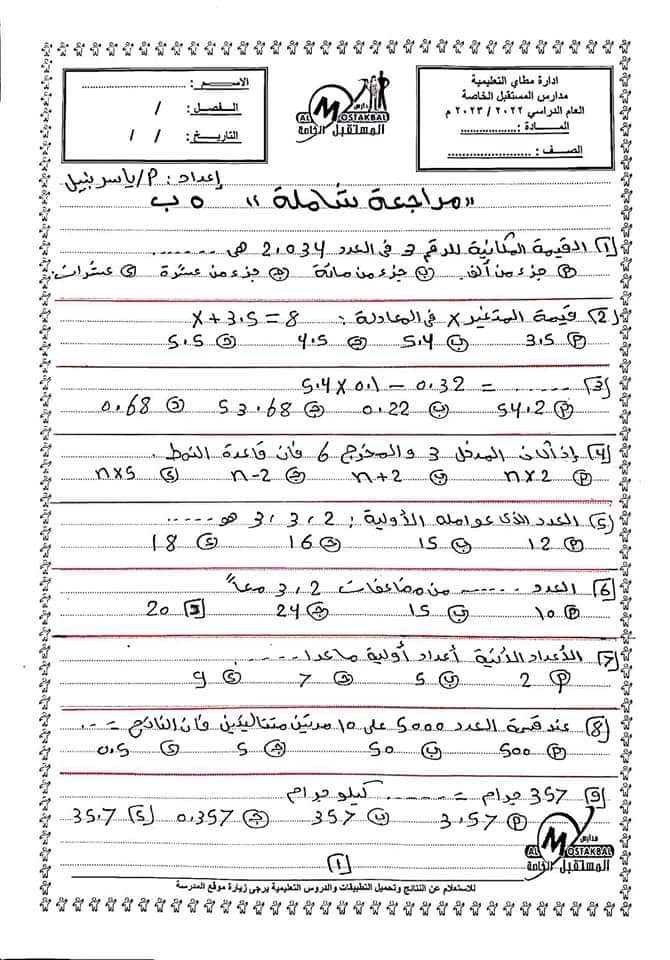 ادارة مطاي التعليمية
مدارس المستقبل الخاصة
العام الدراسي ٢٠٢٢ / ٢٠٢٣ م
المــادة : ....................
الصـف : .........................
مدارس
AL MOSTAKBAL
المستقبل الخاصة
الاســم : ......................
الفـصل : /
التاريخ : / ١
إعداد : م/ياسر نبيل
"مراجعة شاملة" ٥ ب
(1) القيمة المكانية للرقم 3 في العدد 2,034 هى .......
(P) جزء من ألف (ب) جزء من مائة (ج) جزء من عشرة (د) عشرات
(2) قيمة المتغير x في المعادلة : x + 3,5 = 8
(P) 3,5 (ب) 5,4 (ج) 4,5 (د) 5,5
(3) 5,4 x 0,1 - 0,32 = ......
(P) 54,2 (ب) 0,22 (ج) 53,68 (د) 0,68
(4) إذا كان المدخل 3 والمخرج 6 فان قاعدة النمط .
(P) n x 2 (ب) n + 2 (ج) n - 2 (د) n x 5
(5) العدد الذى عوامله الأولية 2 ، 3 ، 3 هو ......
(P) 12 (ب) 15 (ج) 16 (د) 18
(6) العدد ...... من مضاعفات 2 ، 3 معاً
(P) 10 (ب) 15 (ج) 24 (د) 20
(7) الأعداد الآتية أعداد أولية ماعدا ......
(P) 2 (ب) 5 (ج) 7 (د) 9
(8) عند قسمة العدد 5000 على 10 مرتين متتاليتين فان الناتج = ...
(P) 500 (ب) 50 (ج) 5 (د) 0,5
(9) 357 جرام = ...... كيلو جرام
(P) 3,57 (ب) 357 (ج) 0,357 (د) 35,7
(1)
مدارس
AL MOSTAKBAL
المستقبل الخاصة
للاستعلام عن النتائج وتحميل التطبيقات والدروس التعليمية يرجى زيارة موقع المدرسة